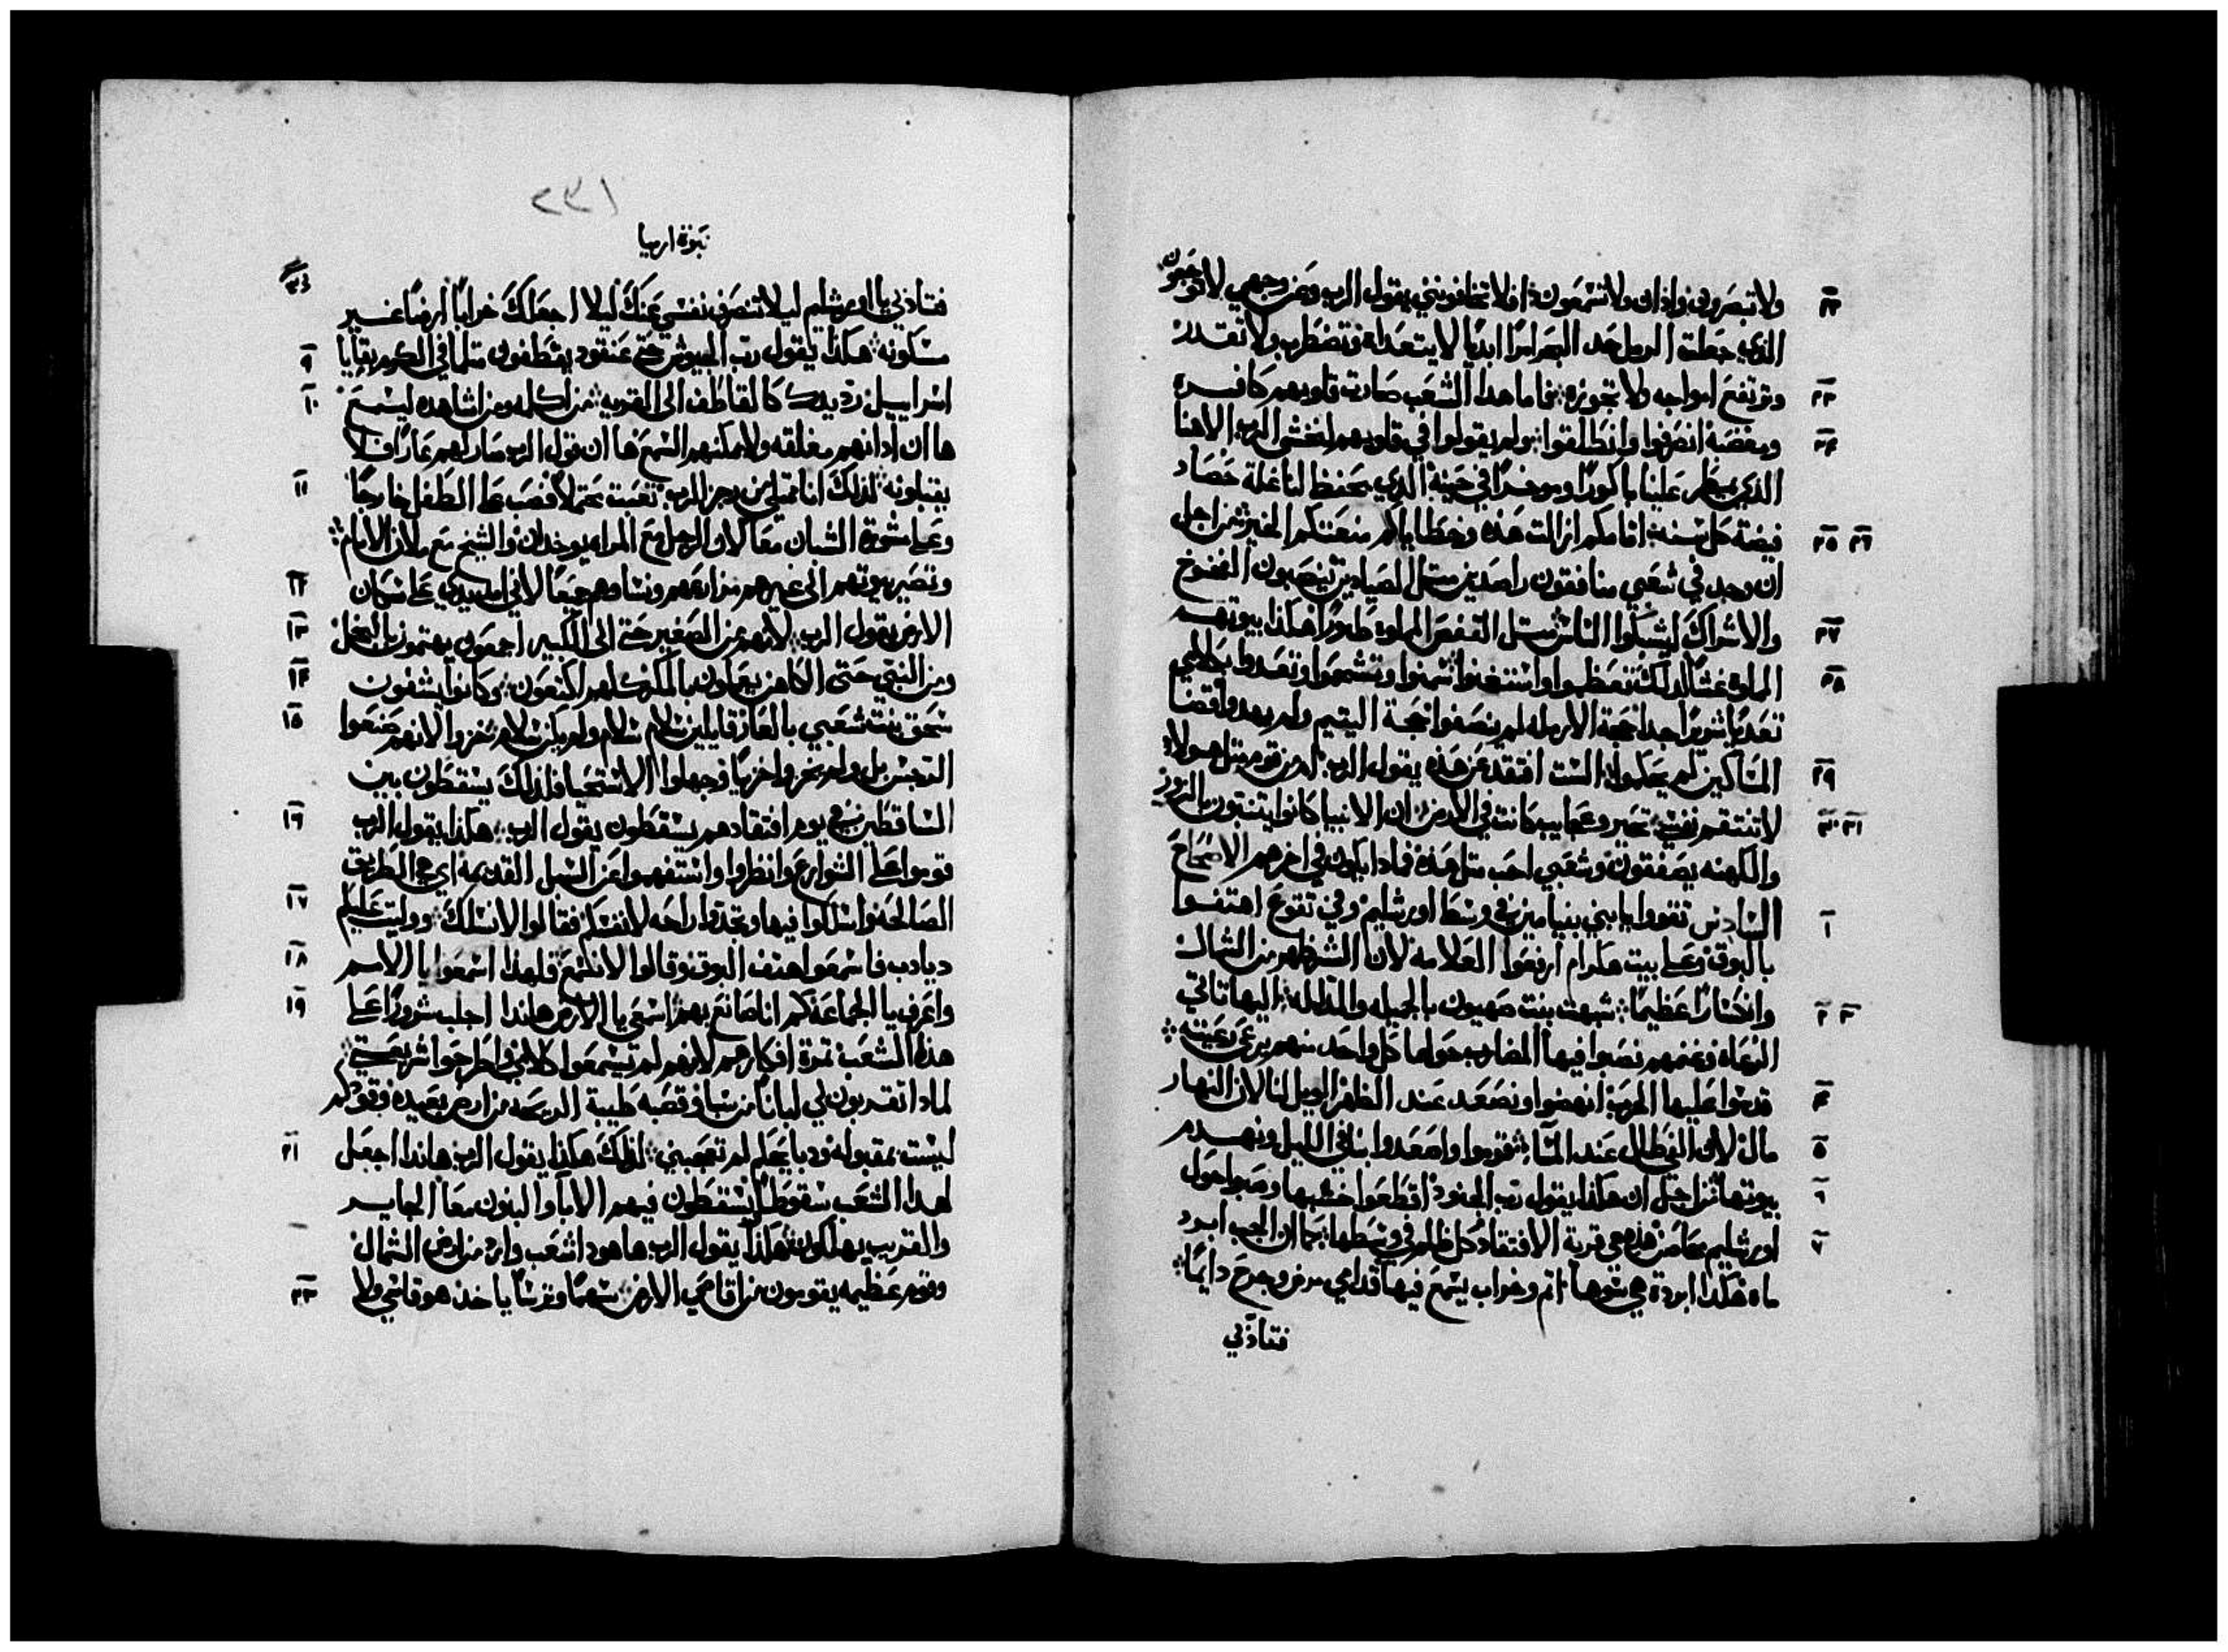 ولا تبصرون واذان ولا تسمعون افلا تخافونني يقول الرب ومن وجهي لا توجعون
الذي جعلت الرمل حد البحر امرًا ابديًا لا يتعداه فتضطرب ولا تقدر
وترتفع امواجه ولا تجوزه فاما هدا الشعب صارت قلوبهم كافره
ومغضبة انصرفوا وانطلقوا ولم يقولوا في قلوبهم لنخشى الرب الاهنا
الذي يمطر علينا باكورًا وموخرًا في حينه الذي يحفظ لنا غلة حصاد
كل سنه اثامكم ازالت هذه وخطاياكم منعتكم الخير من اجل
ان وجد في شعبي منافقون راصدين مثل الصيادين ينصبون الفخوخ
والاشراك ليشبكوا الناس مثل القفص المملوء طيورًا هكذا بيوتهم
المملوه غشًا لذلك تعظموا واستغنوا سمنوا وتشحموا وتعدوا
تعديًا شريرًا جدا حجة الارمله لم ينصفوا حجة اليتيم ولم وقضا
المساكين لم يحكموا الست افتقد عن هذه يقول الرب ام من قوم مثل هولا
لا تنتقم نفسي تحير وعجايب كانت في الارض ان الانبيا كانوا يتنبون بالزور
والكهنه يصفقون وشعبي احب مثل هذه فمادا يكون في اخرهم الاصحاح
السادس تقووا يا بني بنيامين في وسط اورشليم وفي تقوع اهتفوا
بالبوق وعلى بيت هكرام ارفعوا العلامه لان الشر ظهر من الشمال
وانكسارًا عظيمًا شبهت بنت صهيون بالجميله والمدلله اليها تاتي
الرعاه وغنمهم نصبوا فيها المضارب حولها كل واحد منهم يرعى رعيته
قدسوا عليها الحرب انهضوا ونصعد عند الظهر الويل لنا لان النهار
مال لان الفي طال عند المسا فقوموا واصعدوا بنا في الليل ونهدم
بيوتها من اجل ان هكذا يقول رب الجنود اقطعوا خشبها وصبوا حول
اورشليم هذه هي قرية الافتقاد كل ظلم في وسطها كما ان الجب ابرد
ماه هكدا ابردة هي شرها اثم وخراب يسمع فيها قدامي مرض وجرح دايمًا
فتاذبي
٢٣١
نبوة ارميا
فتاذبي يا اورشليم ليلا تنصرف نفسي عنك ليلا اجعلك خرابًا ارضًا غير
مسكونه هكذا يقول رب الجيوش حتى عنقود يقطفون مثلما في الكرم بقايا
اسراييل رد يدك كالقاطف الى القريه من اكلمه ومن اشاهده ليسمع
ها ان ادانهم مغلقه ولا يمكنهم السمع ها ان قول الرب صار لهم عارًا فلا
يقبلونه لذلك انا ممتلي من رجز الرب تعبت محتملًا فصب على الطفل خارجًا
وعلى مشورة الشبان معًا لان الرجل مع المراه يوخدان والشيخ مع ملان الايام
وتصير بيوتهم الى غيرهم مزارعهم ونساوهم جميعًا لاني امد يدي على سكان
الارض يقول الرب لانهم من الصغير حتى الى الكبير اجمعون يهتمون بالبخل
ومن النبي حتى الكاهن يعملون بالمكر كلهم اكتعون وكانوا يشفون
سحق بنت شعبي بالعار قايلين سلام سلام ولم يكن سلام خزوا لانهم صنعوا
الرجس بل ولم يخزوا خزيًا وجهلوا الاستحيا فلذلك يسقطون بين
الساقطين في يوم افتقادهم يسقطون يقول الرب هكذا يقول الرب
قوموا على الشوارع وانظروا واستفهموا عن السبل القديمه اي هي الطريق
الصالحه واسلكوا فيها وتجدوا راحه لانفسكم فقالوا لا نسلك ووليت عليكم
ديادب فاسمعوا هتف البوق وقالوا لا نسمع فلهدا اسمعوا يا الامم
واعرفي يا الجماعة كم انا صانع بهم اسمعي يا الارض هاندا اجلب شرورًا على
هذا الشعب ثمرة افكارهم لانهم لم يسمعوا كلامي واطرحوا شريعتي
لمادا تقدمون لي لبانًا من سبا وقصبه طيبة الريحه من ارض بعيده وقودكم
ليست بمقبوله ودبايحكم لم تعجبني لذلك هكذا يقول الرب هاندا اجعل
لهدا الشعب سقوطًا يسقطون فيهم الابا والبنون معًا الجاير
والقريب يهلكون هكذا يقول الرب هاهودا شعب وارد من ارض الشمال
وقوم عظيمه يقومون من اقاصي الارض سهمًا وترسًا ياخذ هو قاسي ولا